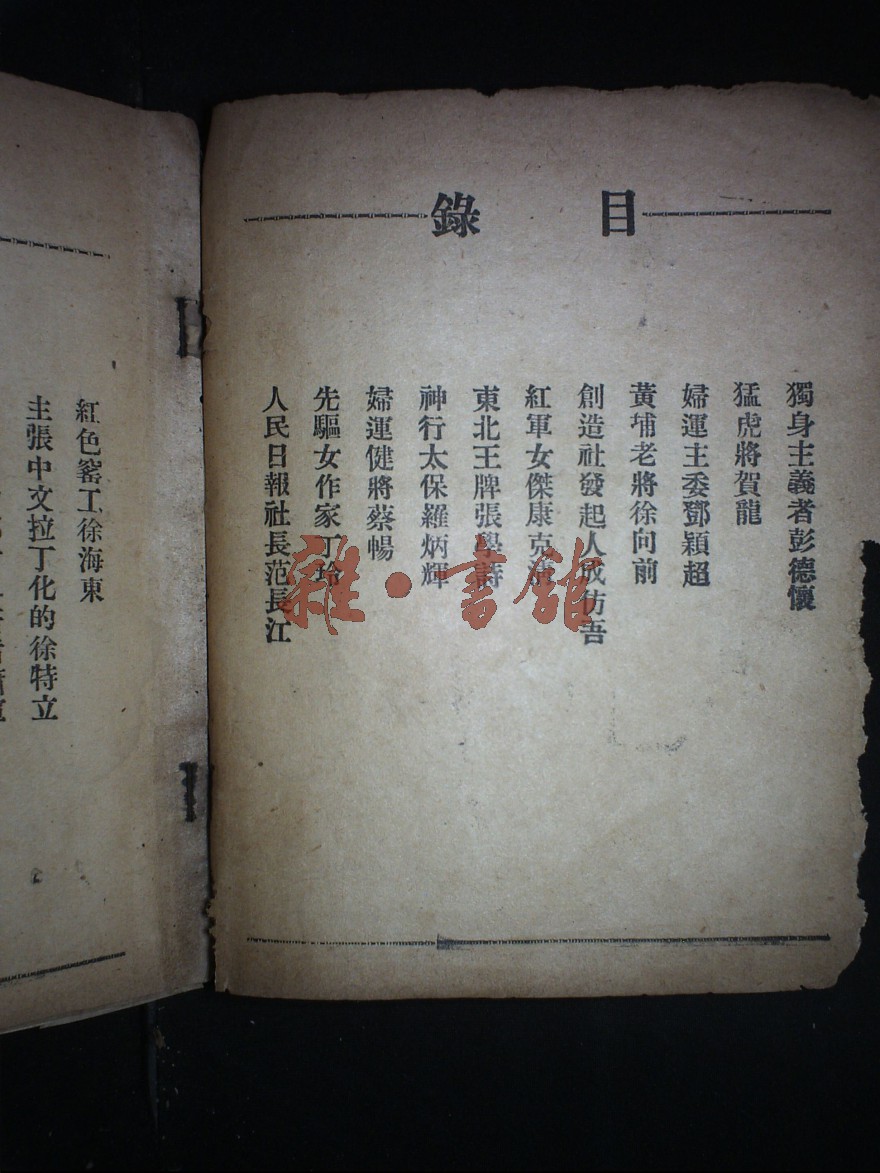 目錄
獨身主義者彭德懷
猛虎將賀龍
婦運主委鄧穎超
黃埔老將徐向前
創造社發起人成仿吾
紅軍女傑康克清
東北王牌張學詩
神行太保羅炳輝
婦運健將蔡暢
先驅女作家丁玲
人民日報社長范長江
紅色窰工徐海東
主張中文拉丁化的徐特立
雜·書館